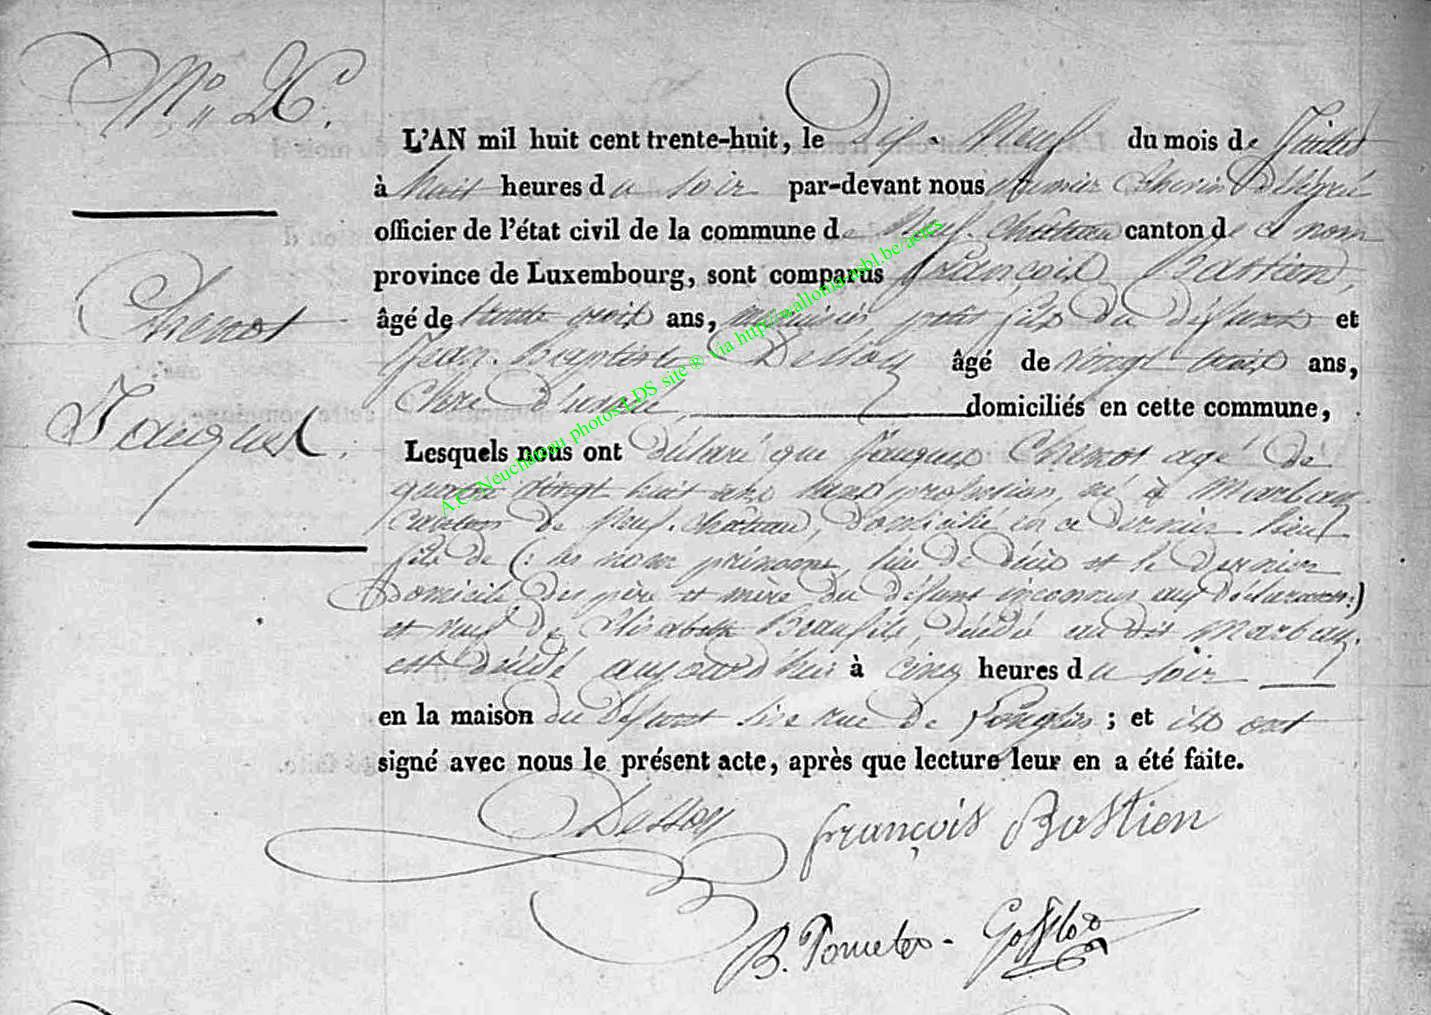 N°
L'AN mil huit cent trente-huit, le Dix-Neuf du mois de Juillet
à huit heures du soir par-devant nous premier Echevin Délégué
officier de l'état civil de la commune de Neuf-château canton de ce nom
province de Luxembourg, sont comparus François Bastien,
Chenot
âgé de trente huit ans, menuisier, petit fils du Défunt et
Jean-Baptiste Dessoy âgé de vingt trois ans,
Jacques.
Clerc d'avoué, domiciliés en cette commune,
Lesquels nous ont déclaré que Jacques Chenot agé de
quatre vingt huit ans né à Marbay
canton de Neuf-château, domicilié en ce dernier lieu
fils de (: les noms prénoms, lieu de décès et le dernier
domicile des père et mère du défunt inconnus aux déclarans:)
et veuf de Elisabeth Beaufils, décédée au dit Marbay.
est décédé aujourd'hui à cinq heures du soir
en la maison du Défunt sise rue de ; et ils ont
signé avec nous le présent acte, après que lecture leur en a été faite.
Dessoy François Bastien
A.C. Neuchâteau photos LDS site ® via http://wallonia-asbl.be/actes